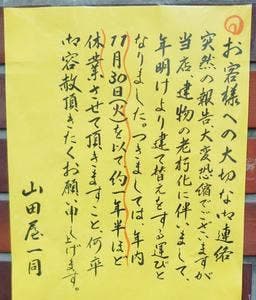 お客様への大切な御連絡
突然の報告、大変恐縮でございますが
当店、建物の老朽化に伴いまして、
年明けより建て替えをする運びと
なりました。つきましては、年内
11月30日(火)を以て約一年半ほど
休業させて頂きますこと、何卒
御容赦頂きたくお願い申し上げます。
山田屋一同